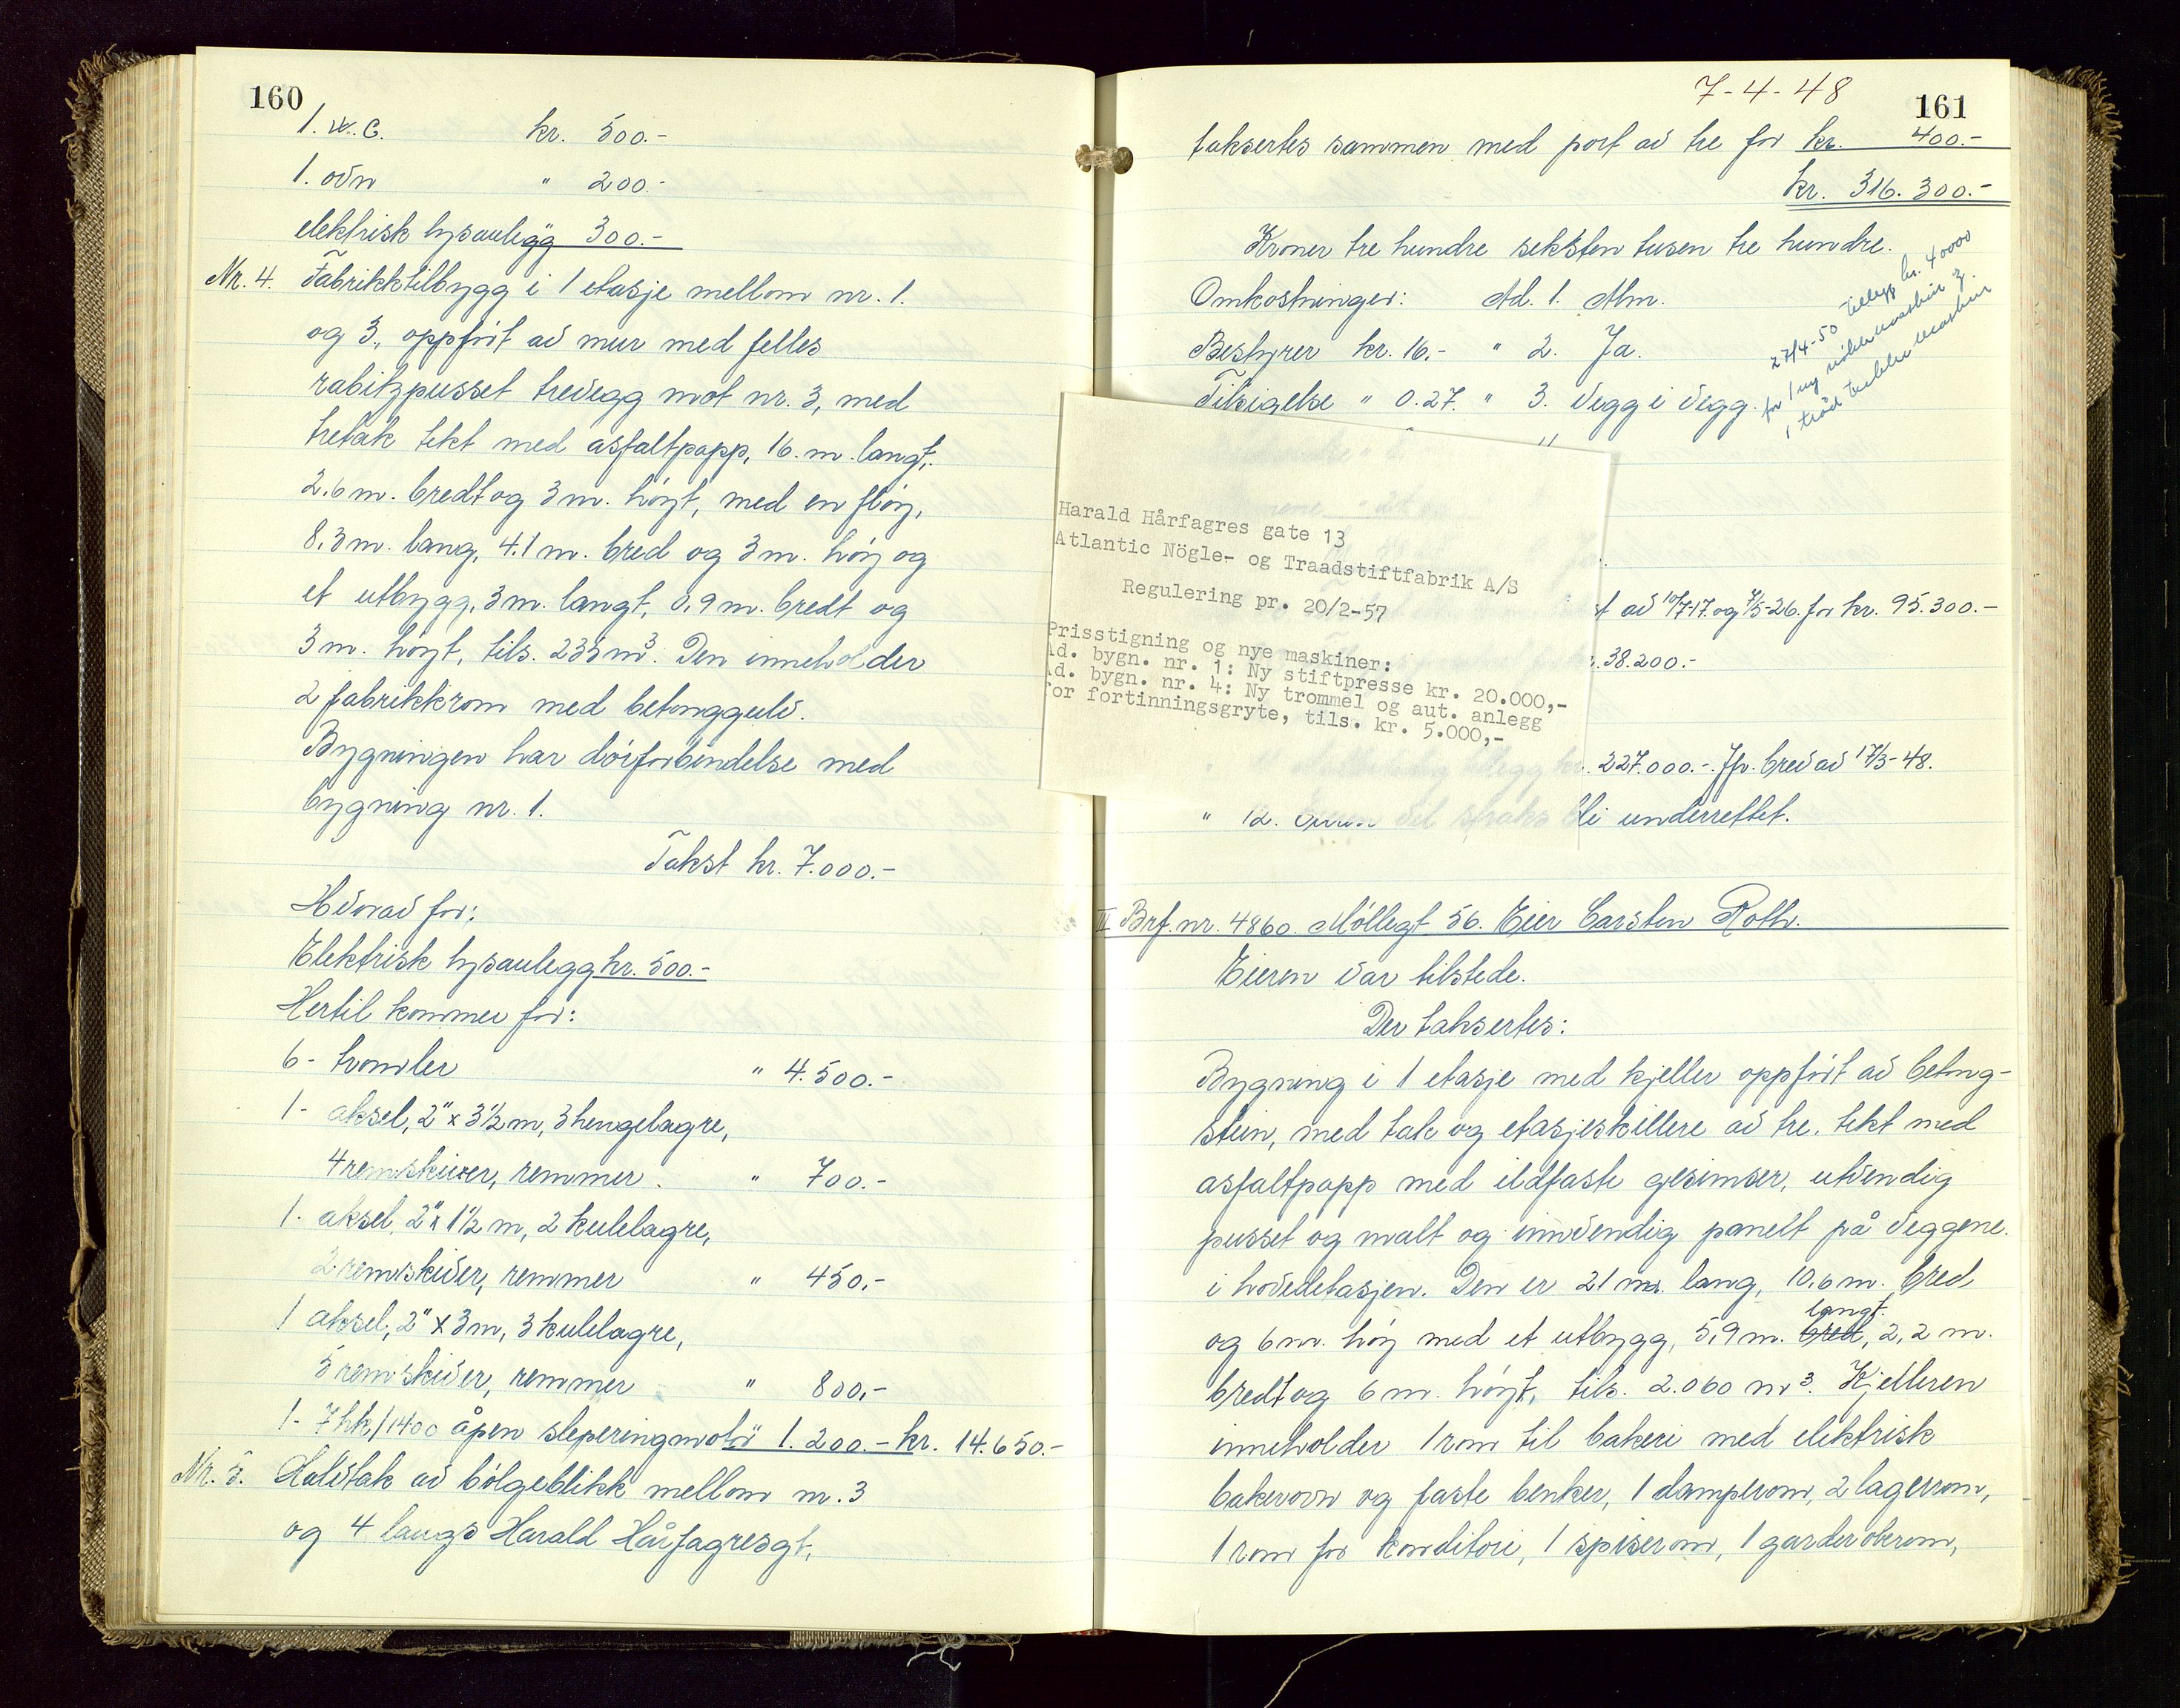 160
1. W.C. kr. 500.-
1. ovn " 200.-
elektrisk lysanlegg 300.-
Nr. 4. Fabrikktilbygg i 1 etasje mellom nr. 1.
og 3., oppført av mur med felles
rabitzpusset trevegg mot nr. 3, med
tretak tekt med asfaltpapp, 16. m. langt,
2.6 m. bredt og 3 m. høyt, med en fløy,
8.3 m. lang, 4.1 m. bred og 3 m. høy og
et utbygg, 3 m. langt, 0,9 m. bredt og
3 m. høyt, tils. 235 m³. Den inneholder
2 fabrikkrom med betonggulv.
Bygningen har dørforbindelse med
bygning nr. 1.
Takst kr. 7.000.-
Hvorav for:
Elektrisk lysanlegg kr. 500.-
Hertil kommer for:
6 - tromler " 4.500.-
1 - aksel, 2" x 3½ m, 3 hengelagre,
4 remskiver, remmer. " 700.-
1. aksel, 2" x 1½ m, 2 kulelagre,
2 remskiver, remmer " 450,-
1 aksel, 2" x 3 m, 3 kulelagre,
5 remskiver, remmer " 800,-
1 - 7 hk/1400 åpen sleperingmotor " 1.200.- kr. 14.650.-
Nr. 5. Halvtak av bølgeblikk mellom nr. 3
og 4 langs Harald Hårfagresgt,
7-4-48
161
taksertes sammen med port av tre for kr. 400.-
kr. 316.300.-
Kroner tre hundre seksten tusen tre hundre.
Omkostninger: Ad. 1. Alm.
Bestyrer kr. 16.- " 2. Ja.
Tilsigelse " 0.27. " 3. Vegg i vegg.
27/4-50 tillegg kr. 40000
for 1 ny maskin og
1 tråd maskin
Harald Hårfagres gate 13
Atlantic Nögle- og Traadstiftfabrik A/S
Regulering pr. 20/2-57
Prisstigning og nye maskiner:
Ad. bygn. nr. 1: Ny stiftpresse kr. 20.000,-
Ad. bygn. nr. 4: Ny trommel og aut. anlegg
for fortinningsgryte, tils. kr. 5.000,-
t av 10/7-17. og 7/5-26. for kr. 95.300.-
. 38.200.-
. 227.000.-. Jfr. brev av 17/3-48.
" 12. straks bli underrettet.
II Brf. nr. 4860. Møllegt 56. Eier Carsten Roth.
Eieren var tilstede.
Der taksertes:
Bygning i 1 etasje med kjeller oppført av betong-
stein, med tak og etasjeskillere av tre, tekt med
asfaltpapp med ildfaste gesimser, utvendig
pusset og malt og innvendig panelt på veggene
i hovedetasjen. Den er 21 m. lang, 10.6 m. bred
langt.
og 6 m. høy med et utbygg, 5,9 m. bred, 2,2 m.
bredt og 6 m. høyt, tils. 2.060 m³. Kjelleren
inneholder 1 rom til bakeri med elektrisk
bakerovn og faste benker, 1 damperom, 2 lagerrom,
1 rom for konditori, 1 spiserom, 1 garderoberom,